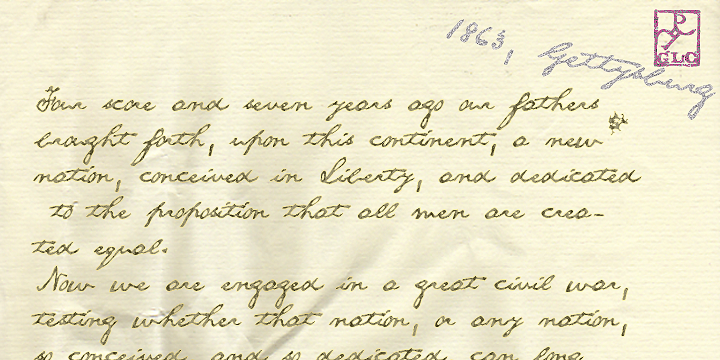 1863, Gettysburg
GLC
Four score and seven years ago our fathers
brought forth, upon this continent, a new
nation, conceived in Liberty, and dedicated
to the proposition that all men are crea-
ted equal.
Now we are engaged in a great civil war,
testing whether that nation, or any nation,
so conceived, and so dedicated, can long